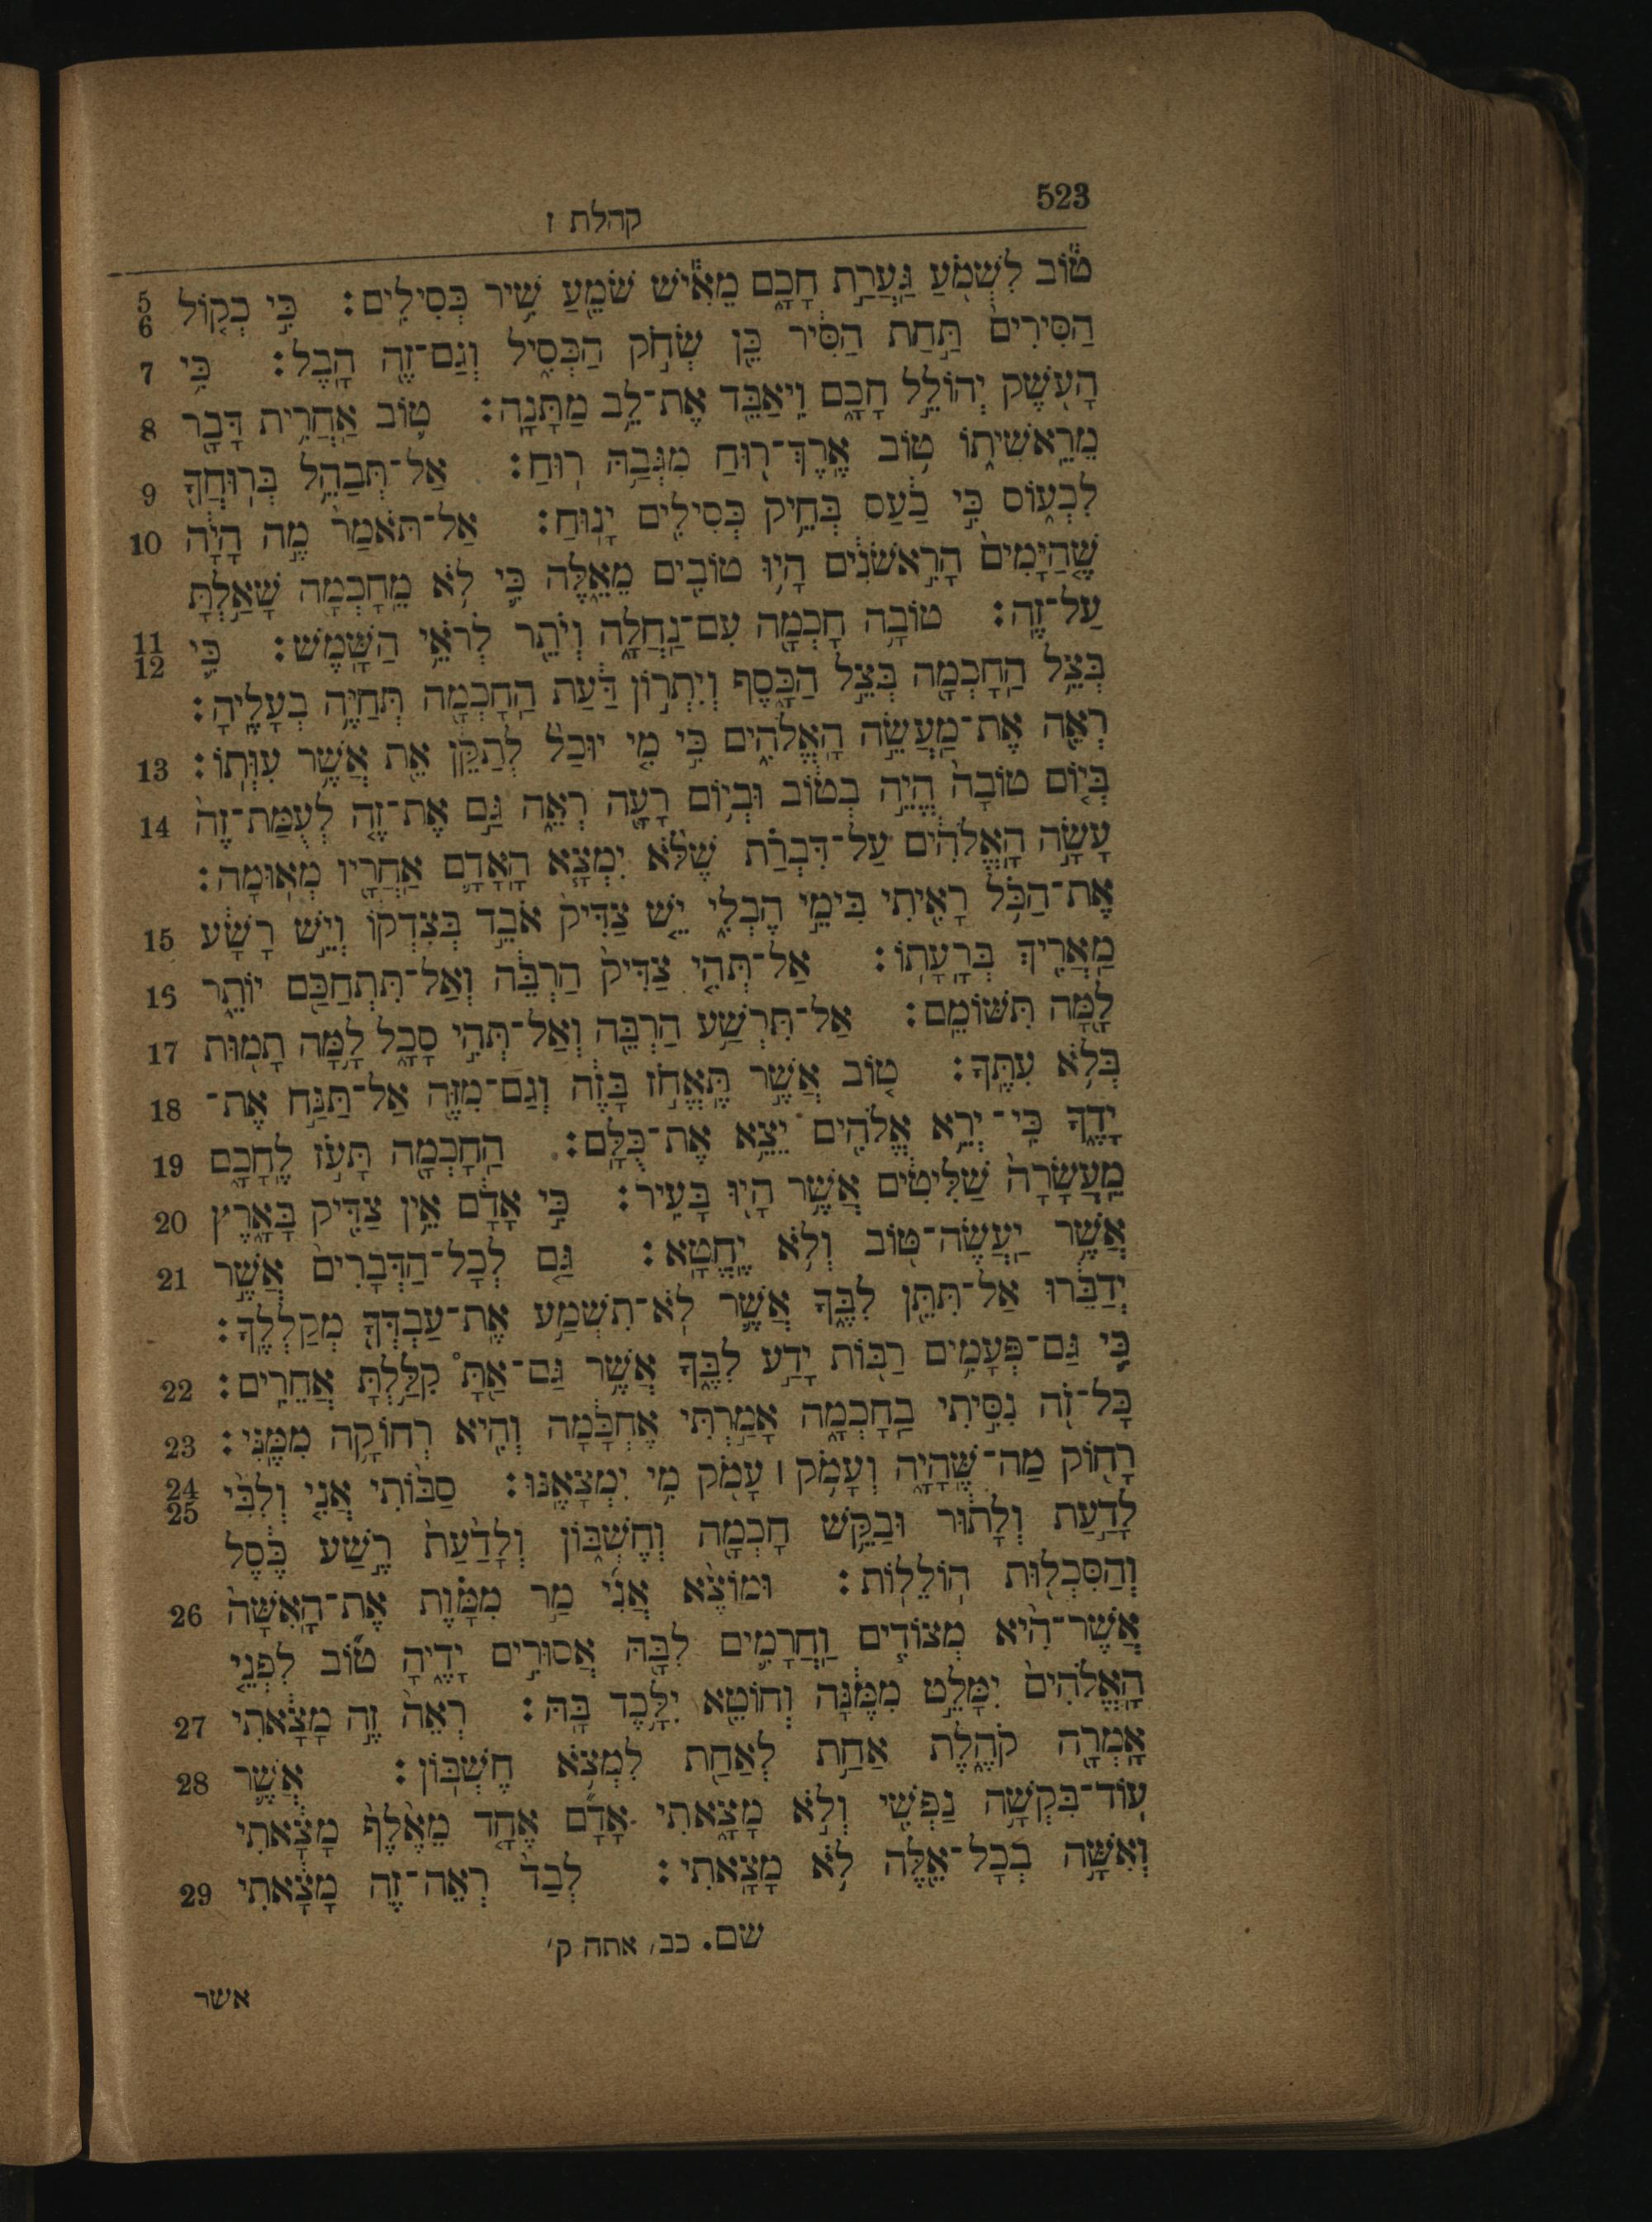 523
קהלת ז
ט֕וֹב לִשְׁמֹ֖עַ גַּעֲרַ֣ת חָכָ֑ם מֵאִ֕ישׁ שֹׁמֵ֖עַ שִׁ֥יר כְּסִילִֽים׃ כִּ֣י כְק֤וֹל 5 6
הַסִּירִים֙ תַּ֣חַת הַסִּ֔יר כֵּ֖ן שְׂחֹ֣ק הַכְּסִ֑יל וְגַם־זֶ֖ה הָֽבֶל׃ כִּ֥י 7
הָעֹ֖שֶׁק יְהוֹלֵ֣ל חָכָ֑ם וִֽיאַבֵּ֥ד אֶת־לֵ֖ב מַתָּנָֽה׃ ט֛וֹב אַחֲרִ֥ית דָּבָ֖ר 8
מֵֽרֵאשִׁית֑וֹ ט֥וֹב אֶֽרֶךְ־ר֖וּחַ מִגְּבַהּ רֽוּחַ׃ אַל־תְּבַהֵ֥ל בְּרֽוּחֲךָ֖ 9
לִכְע֑וֹס כִּ֣י כַ֔עַס בְּחֵ֥יק כְּסִילִ֖ים יָנֽוּחַ׃ אַל־תֹּאמַר֙ מֶ֣ה הָיָ֔ה 10
שֶׁ֤הַיָּמִים֙ הָרִ֣אשֹׁנִ֔ים הָי֥וּ טוֹבִ֖ים מֵאֵ֑לֶּה כִּ֛י לֹ֥א מֵחָכְמָ֖ה שָׁאַ֥לְתָּ
עַל־זֶֽה׃ טוֹבָ֥ה חָכְמָ֖ה עִֽם־נַחֲלָ֑ה וְיֹתֵ֖ר לְרֹאֵ֥י הַשָּֽׁמֶשׁ׃ כִּ֛י 11 12
בְּצֵ֥ל הַֽחָכְמָ֖ה בְּצֵ֣ל הַכָּ֑סֶף וְיִתְר֣וֹן דַּ֔עַת הַֽחָכְמָ֖ה תְּחַיֶּ֥ה בְעָלֶֽיהָ׃
רְאֵ֖ה אֶת־מַעֲשֵׂ֣ה הָאֱלֹהִ֑ים כִּ֣י מִ֤י יוּכַל֙ לְתַקֵּ֔ן אֵ֖ת אֲשֶׁ֥ר עִוְּתֽוֹ׃ 13
בְּי֤וֹם טוֹבָה֙ הֱיֵ֣ה בְט֔וֹב וּבְי֥וֹם רָעָ֖ה רְאֵ֑ה גַּ֣ם אֶת־זֶ֤ה לְעֻמַּת־זֶה֙ 14
עָשָׂ֣ה הָֽאֱלֹהִ֔ים עַל־דִּבְרַ֗ת שֶׁלֹּ֨א יִמְצָ֧א הָֽאָדָ֛ם אַחֲרָ֖יו מְאֽוּמָה׃
אֶת־הַכֹּ֥ל רָאִ֖יתִי בִּימֵ֣י הֶבְלִ֑י יֵ֤שׁ צַדִּיק֙ אֹבֵ֣ד בְּצִדְק֔וֹ וְיֵ֣שׁ רָשָׁ֔ע 15
מַאֲרִ֖יךְ בְּרָעָתֽוֹ׃ אַל־תְּהִ֤י צַדִּיק֙ הַרְבֵּ֔ה וְאַל־תִּתְחַכַּ֖ם יוֹתֵ֑ר 16
לָ֖מָּה תִּשּׁוֹמֵֽם׃ אַל־תִּרְשַׁ֥ע הַרְבֵּ֖ה וְאַל־תְּהִ֣י סָכָ֑ל לָ֥מָּה תָמ֖וּת 17
בְּלֹ֥א עִתֶּֽךָ׃ ט֚וֹב אֲשֶׁ֣ר תֶּאֱחֹ֣ז בָּזֶ֔ה וְגַם־מִזֶּ֖ה אַל־תַּנַּ֣ח אֶת־ 18
יָדֶ֑ךָ כִּֽי־יְרֵ֥א אֱלֹהִ֖ים יֵצֵ֥א אֶת־כֻּלָּֽם׃ הַֽחָכְמָ֖ה תָּעֹ֣ז לֶחָכָ֑ם 19
מֵֽעֲשָׂרָה֙ שַׁלִּיטִ֔ים אֲשֶׁ֥ר הָי֖וּ בָּעִֽיר׃ כִּ֣י אָדָ֔ם אֵ֥ין צַדִּ֖יק בָּאָ֑רֶץ 20
אֲשֶׁ֥ר יַעֲשֶׂה־טּ֖וֹב וְלֹ֥א יֶחֱטָֽא׃ גַּ֤ם לְכָל־הַדְּבָרִים֙ אֲשֶׁ֣ר 21
יְדַבֵּ֔רוּ אַל־תִּתֵּ֖ן לִבֶּ֑ךָ אֲשֶׁ֥ר לֹֽא־תִשְׁמַ֥ע אֶֽת־עַבְדְּךָ֖ מְקַלְלֶֽךָ׃
כִּ֛י גַּם־פְּעָמִ֥ים רַבּ֖וֹת יָדַ֣ע לִבֶּ֑ךָ אֲשֶׁ֥ר גַּם־אַ֖תָּ֯ קִלַּ֥לְתָּ אֲחֵרִֽים׃ 22
כָּל־זֹ֖ה נִסִּ֣יתִי בַֽחָכְמָ֑ה אָמַ֣רְתִּי אֶחְכָּ֔מָה וְהִ֖יא רְחוֹקָ֥ה מִמֶּֽנִּי׃ 23
רָח֖וֹק מַה־שֶּׁהָיָ֑ה וְעָמֹ֥ק ׀ עָמֹ֖ק מִ֥י יִמְצָאֶֽנּוּ׃ סַבּ֨וֹתִי אֲנִ֤י וְלִבִּי֙ 24 25
לָדַ֣עַת וְלָת֔וּר וּבַקֵּ֥שׁ חָכְמָ֖ה וְחֶשְׁבּ֑וֹן וְלָדַ֙עַת֙ רֶ֣שַׁע כֶּ֔סֶל
וְהַסִּכְל֖וּת הֽוֹלֵלֽוֹת׃ וּמוֹצֶ֨א אֲנִ֜י מַ֣ר מִמָּ֗וֶת אֶת־הָֽאִשָּׁה֙ 26
אֲשֶׁר־הִ֨יא מְצוֹדִ֧ים וַחֲרָמִ֛ים לִבָּ֖הּ אֲסוּרִ֣ים יָדֶ֑יהָ ט֞וֹב לִפְנֵ֤י
הָאֱלֹהִים֙ יִמָּלֵ֣ט מִמֶּ֔נָּה וְחוֹטֵ֖א יִלָּ֥כֶד בָּֽהּ׃ רְאֵה֙ זֶ֣ה מָצָ֔אתִי 27
אָמְרָ֖ה קֹהֶ֑לֶת אַחַ֥ת לְאַחַ֖ת לִמְצֹ֥א חֶשְׁבּֽוֹן׃ אֲשֶׁ֛ר 28
עוֹד־בִּקְשָׁ֥ה נַפְשִׁ֖י וְלֹ֣א מָצָ֑אתִי אָדָ֞ם אֶחָ֤ד מֵאֶ֙לֶף֙ מָצָ֔אתִי
וְאִשָּׁ֥ה בְכָל־אֵ֖לֶּה לֹ֥א מָצָֽאתִי׃ לְבַד֙ רְאֵה־זֶ֣ה מָצָ֔אתִי 29
שם. כב׳ אתה ק׳
אשר